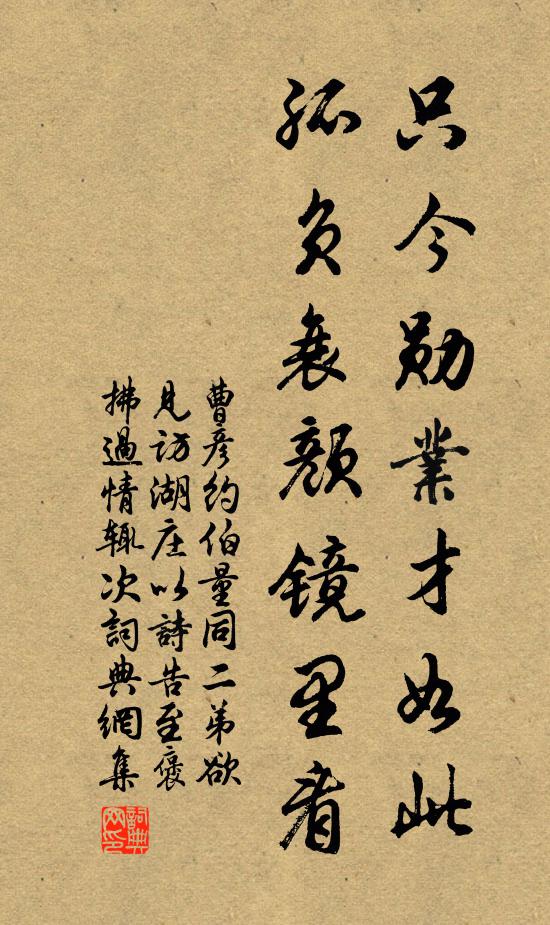 只今勋業才如此
孤负衰颜镜里看
曹彦约伯量同二弟欲
見访湖庄以詩告至褒
拂過情辄次詞典網集
詞典
网印